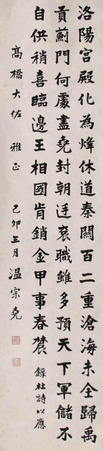 洛陽宮殿化為烽休道秦關百二重滄海未全歸禹
貢薊門何處盡堯封朝廷袞職雖多預天下軍儲不
自供稍喜臨邊王相國肯銷金甲事春農 錄杜詩以應
高橋大佐 雅正 己卯三月 溫宗堯